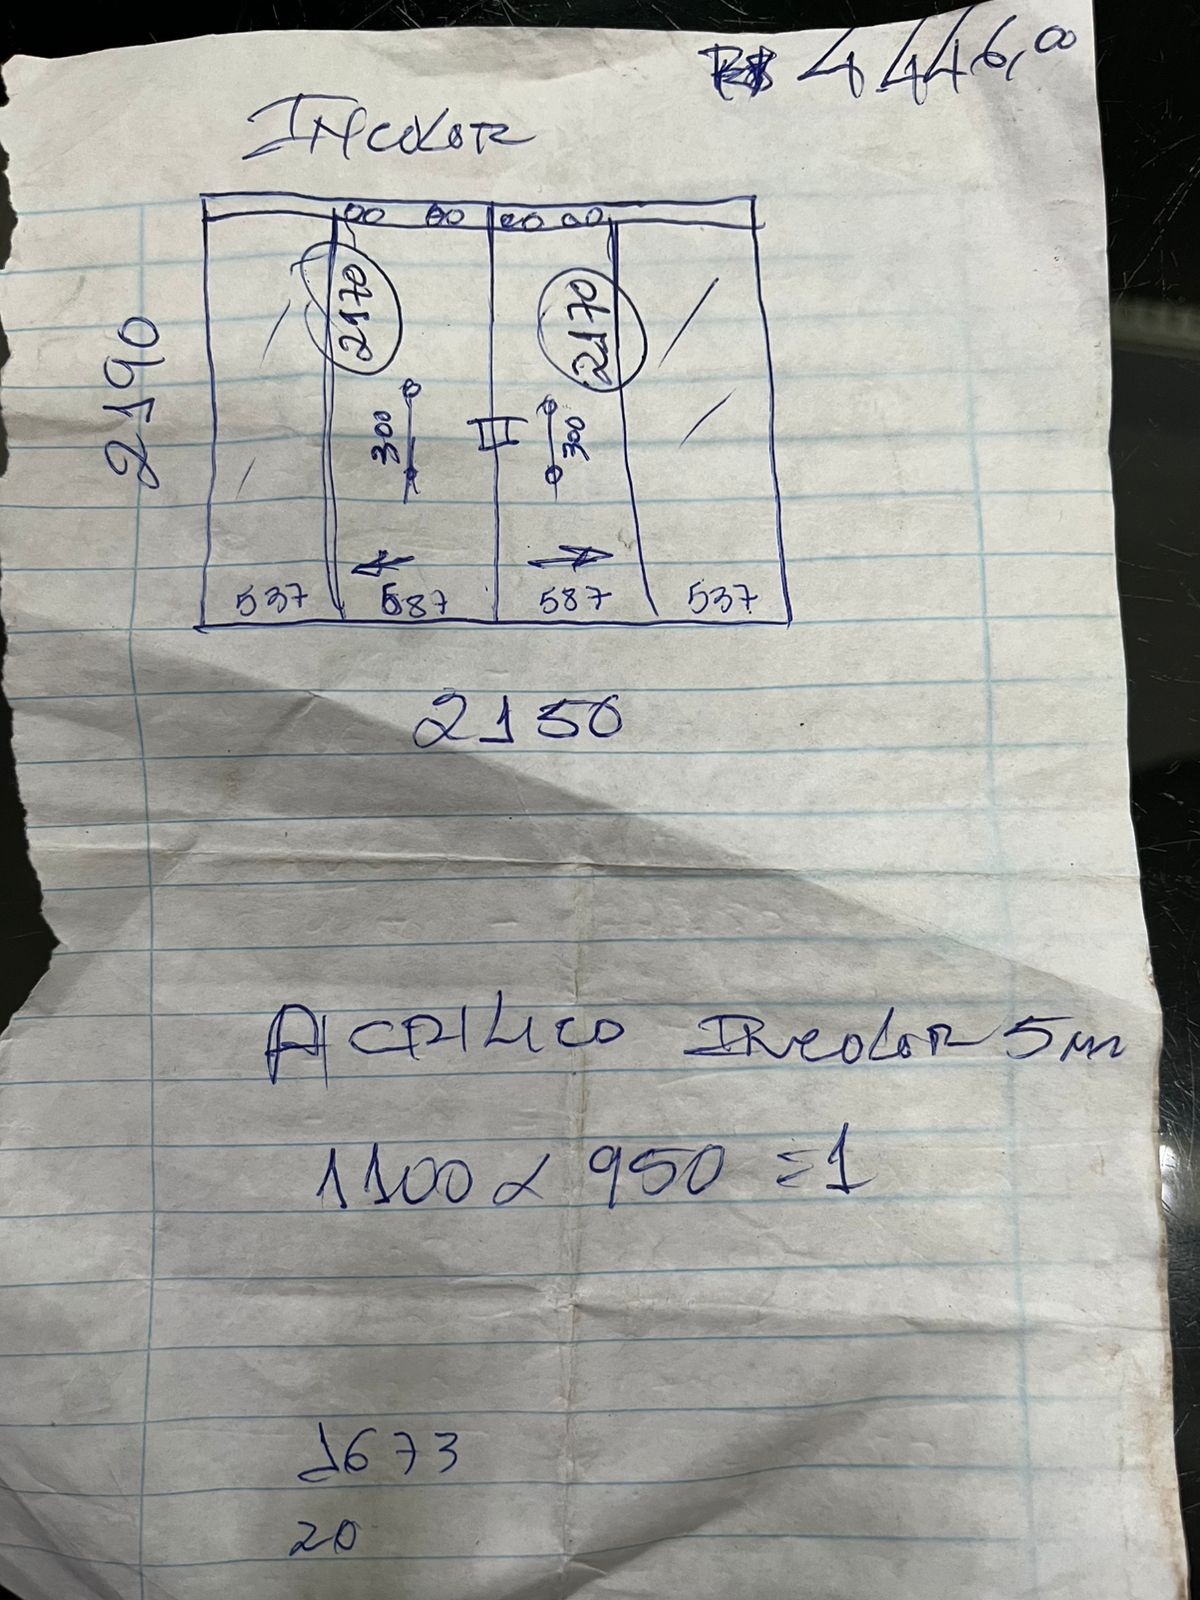 R$ 4446,00
INCOLOR
2170 2170
2190
300 300
537 587 587 537
2150
ACRILICO INCOLOR 5m
1100 x 950 = 1
1673
20